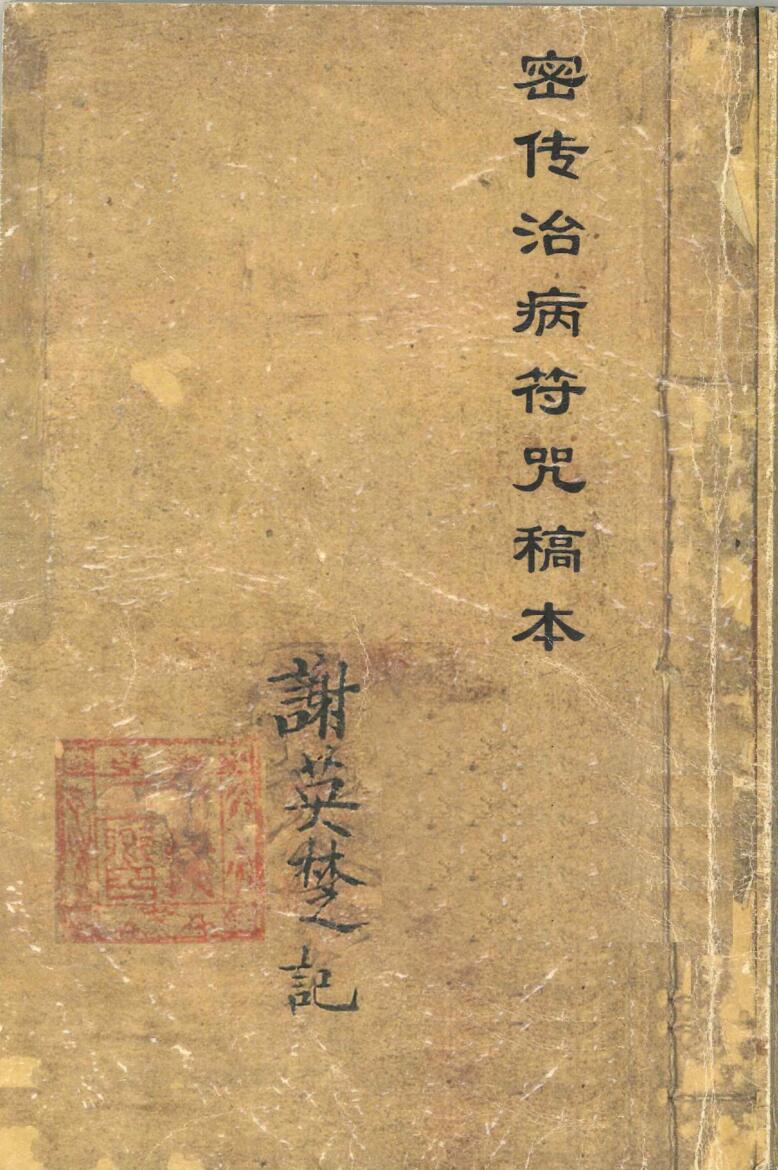 密传治病符咒稿本
謝英楚記